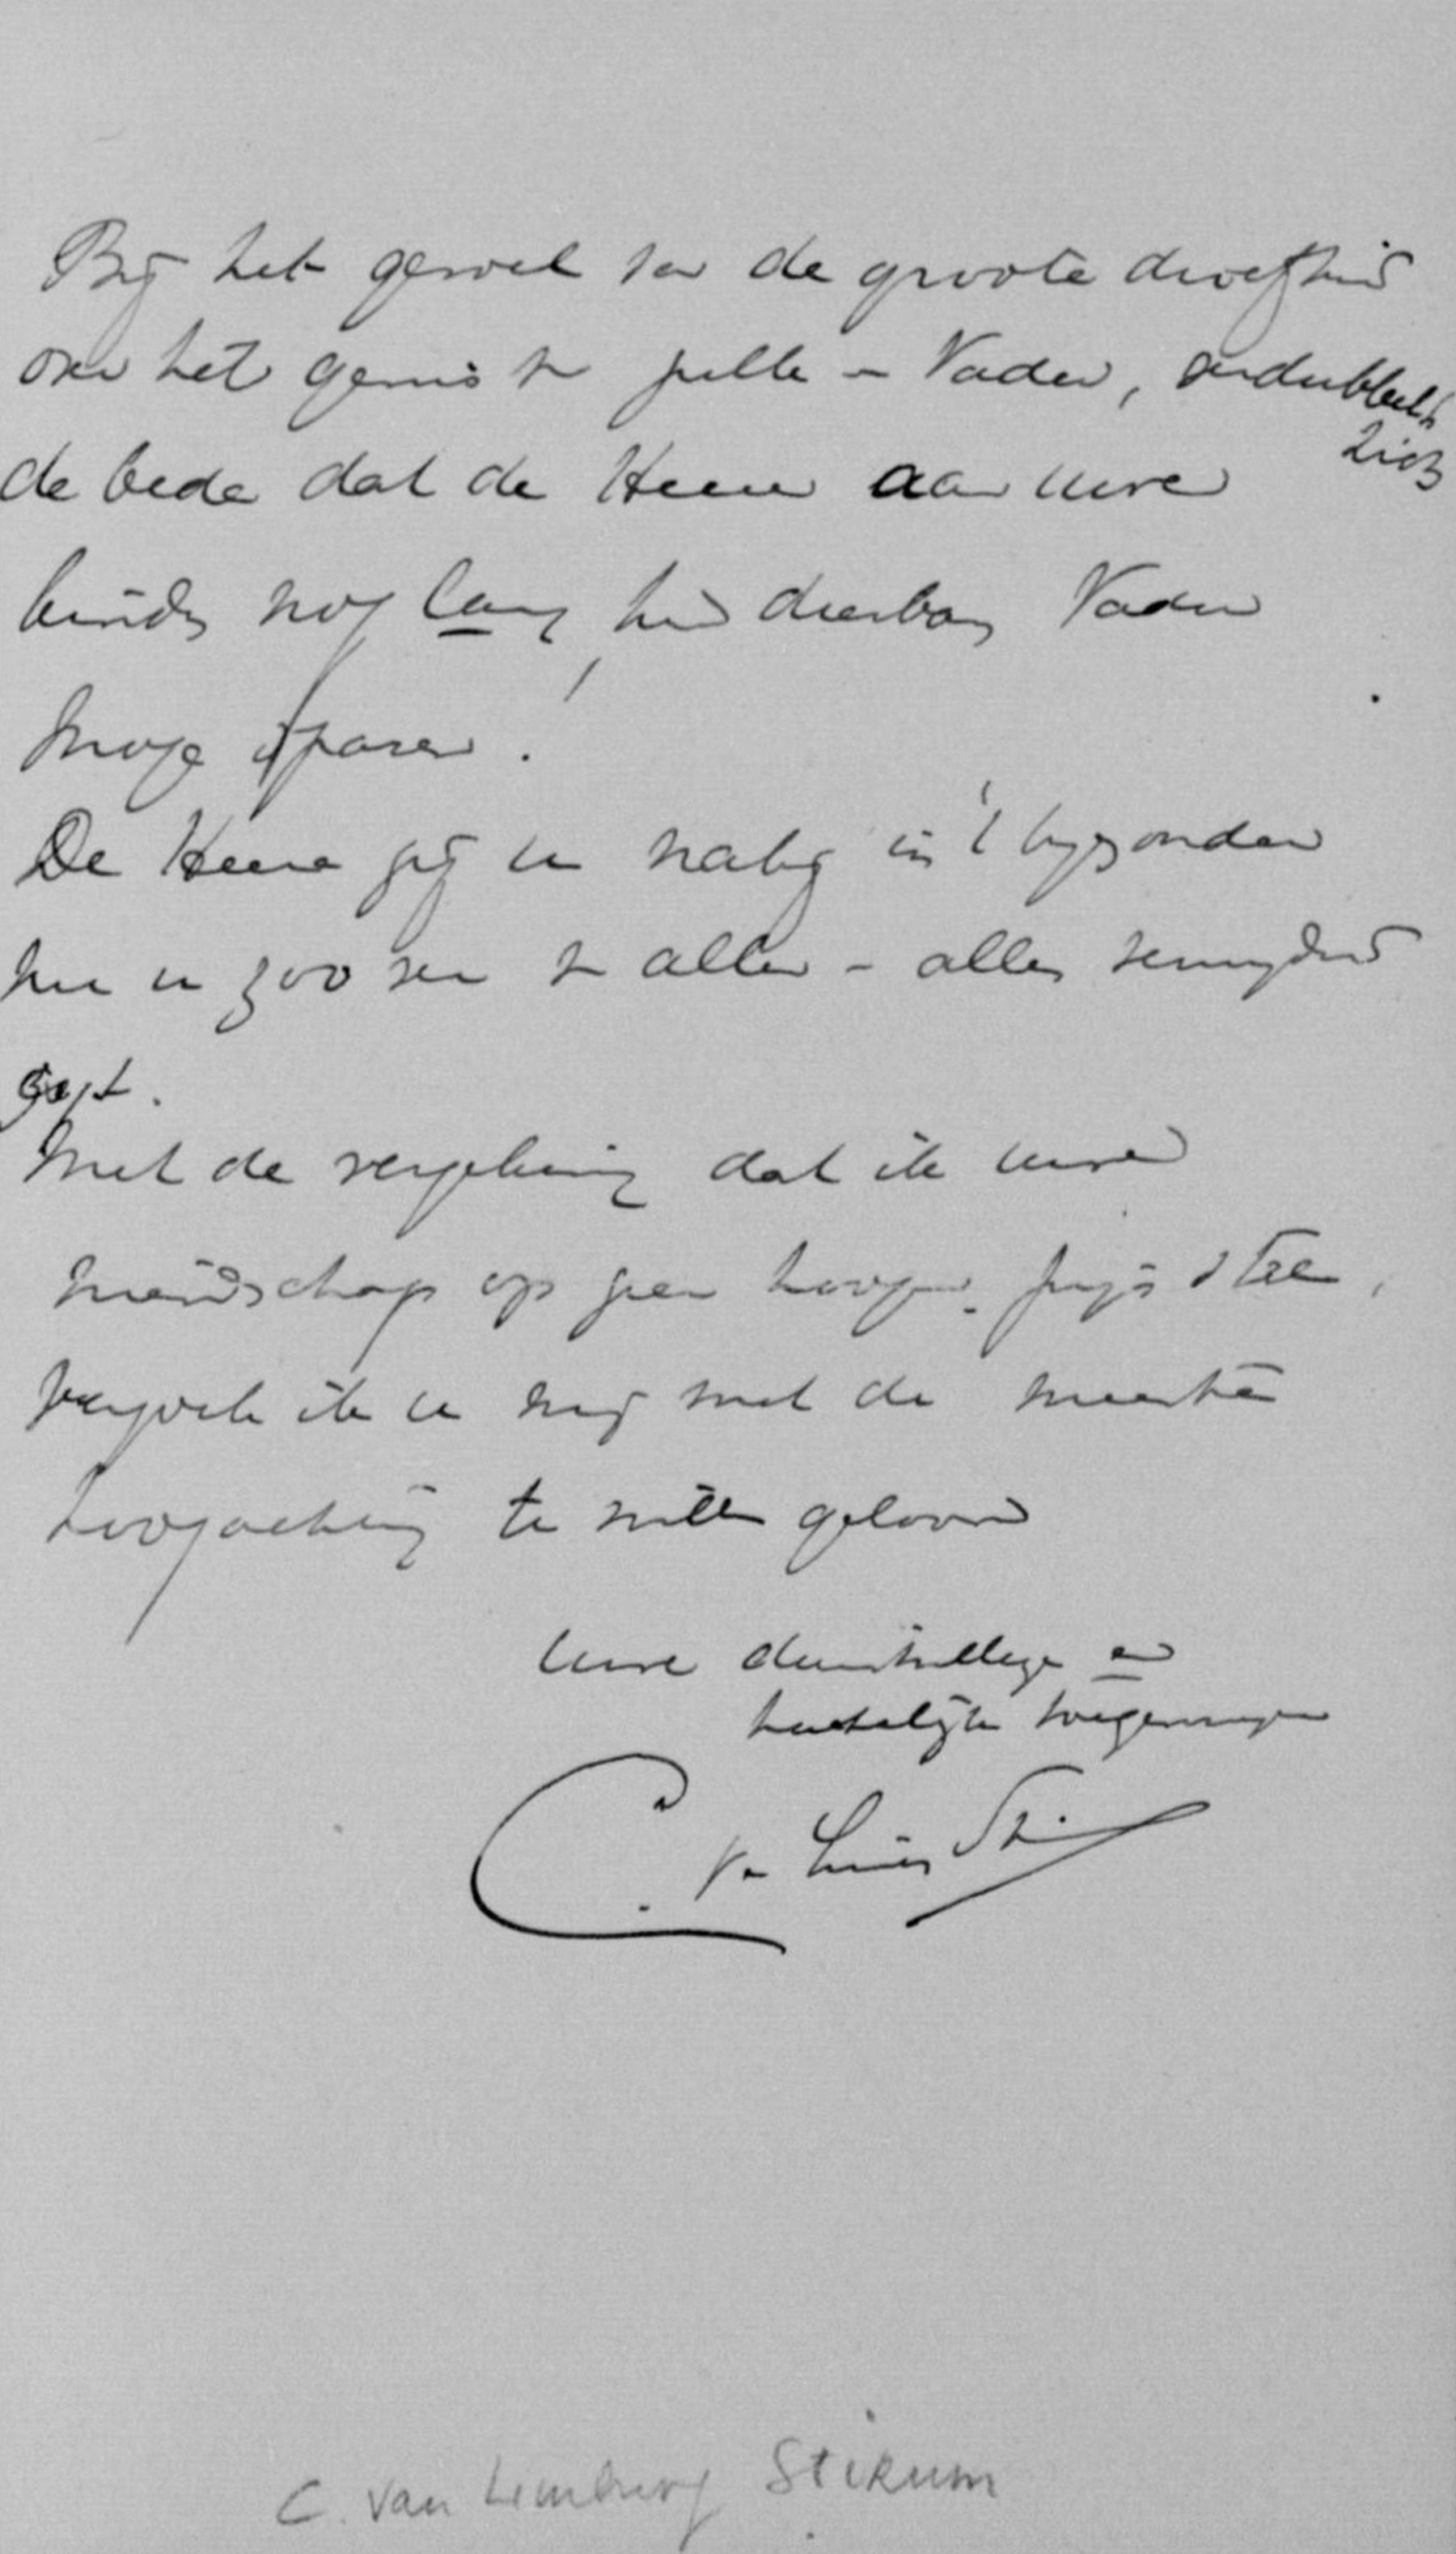 Bij het gevoel van de groote droefheid
over het gemis van zulk een Vader, verdubbelt
zich
de bede dat de Heere aan uwe
kinders nog lang hun dierbare Vader
moge sparen!
De Heere zij u nabij in 't byzonder
nu u zoo ver van allen en alles verwyderd
zyt.
Met de verzekering dat ik uwe
vriendschap op zeer hoogen prijs stel,
verzoek ik u mij met de meeste
hoogachting te willen gelooven
Uwe dienstwillige en
hartelijk toegenegen
C. van Limburg Stirum
C. van Limburg Stirum